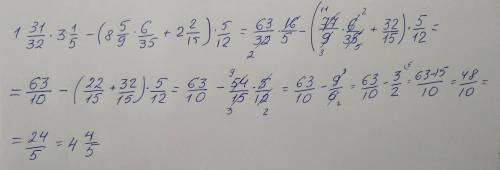 1 31/32 · 3 1/5 − (8 5/9 · 6/35 + 2 2/15) · 5/12 = 63/32 · 16/5 − (77/9 · 6/35 + 32/15) · 5/12 =
= 63/10 − (22/15 + 32/15) · 5/12 = 63/10 − 54/15 · 5/12 = 63/10 − 9/6 = 63/10 − 3/2 = 63-15/10 = 48/10 =
= 24/5 = 4 4/5